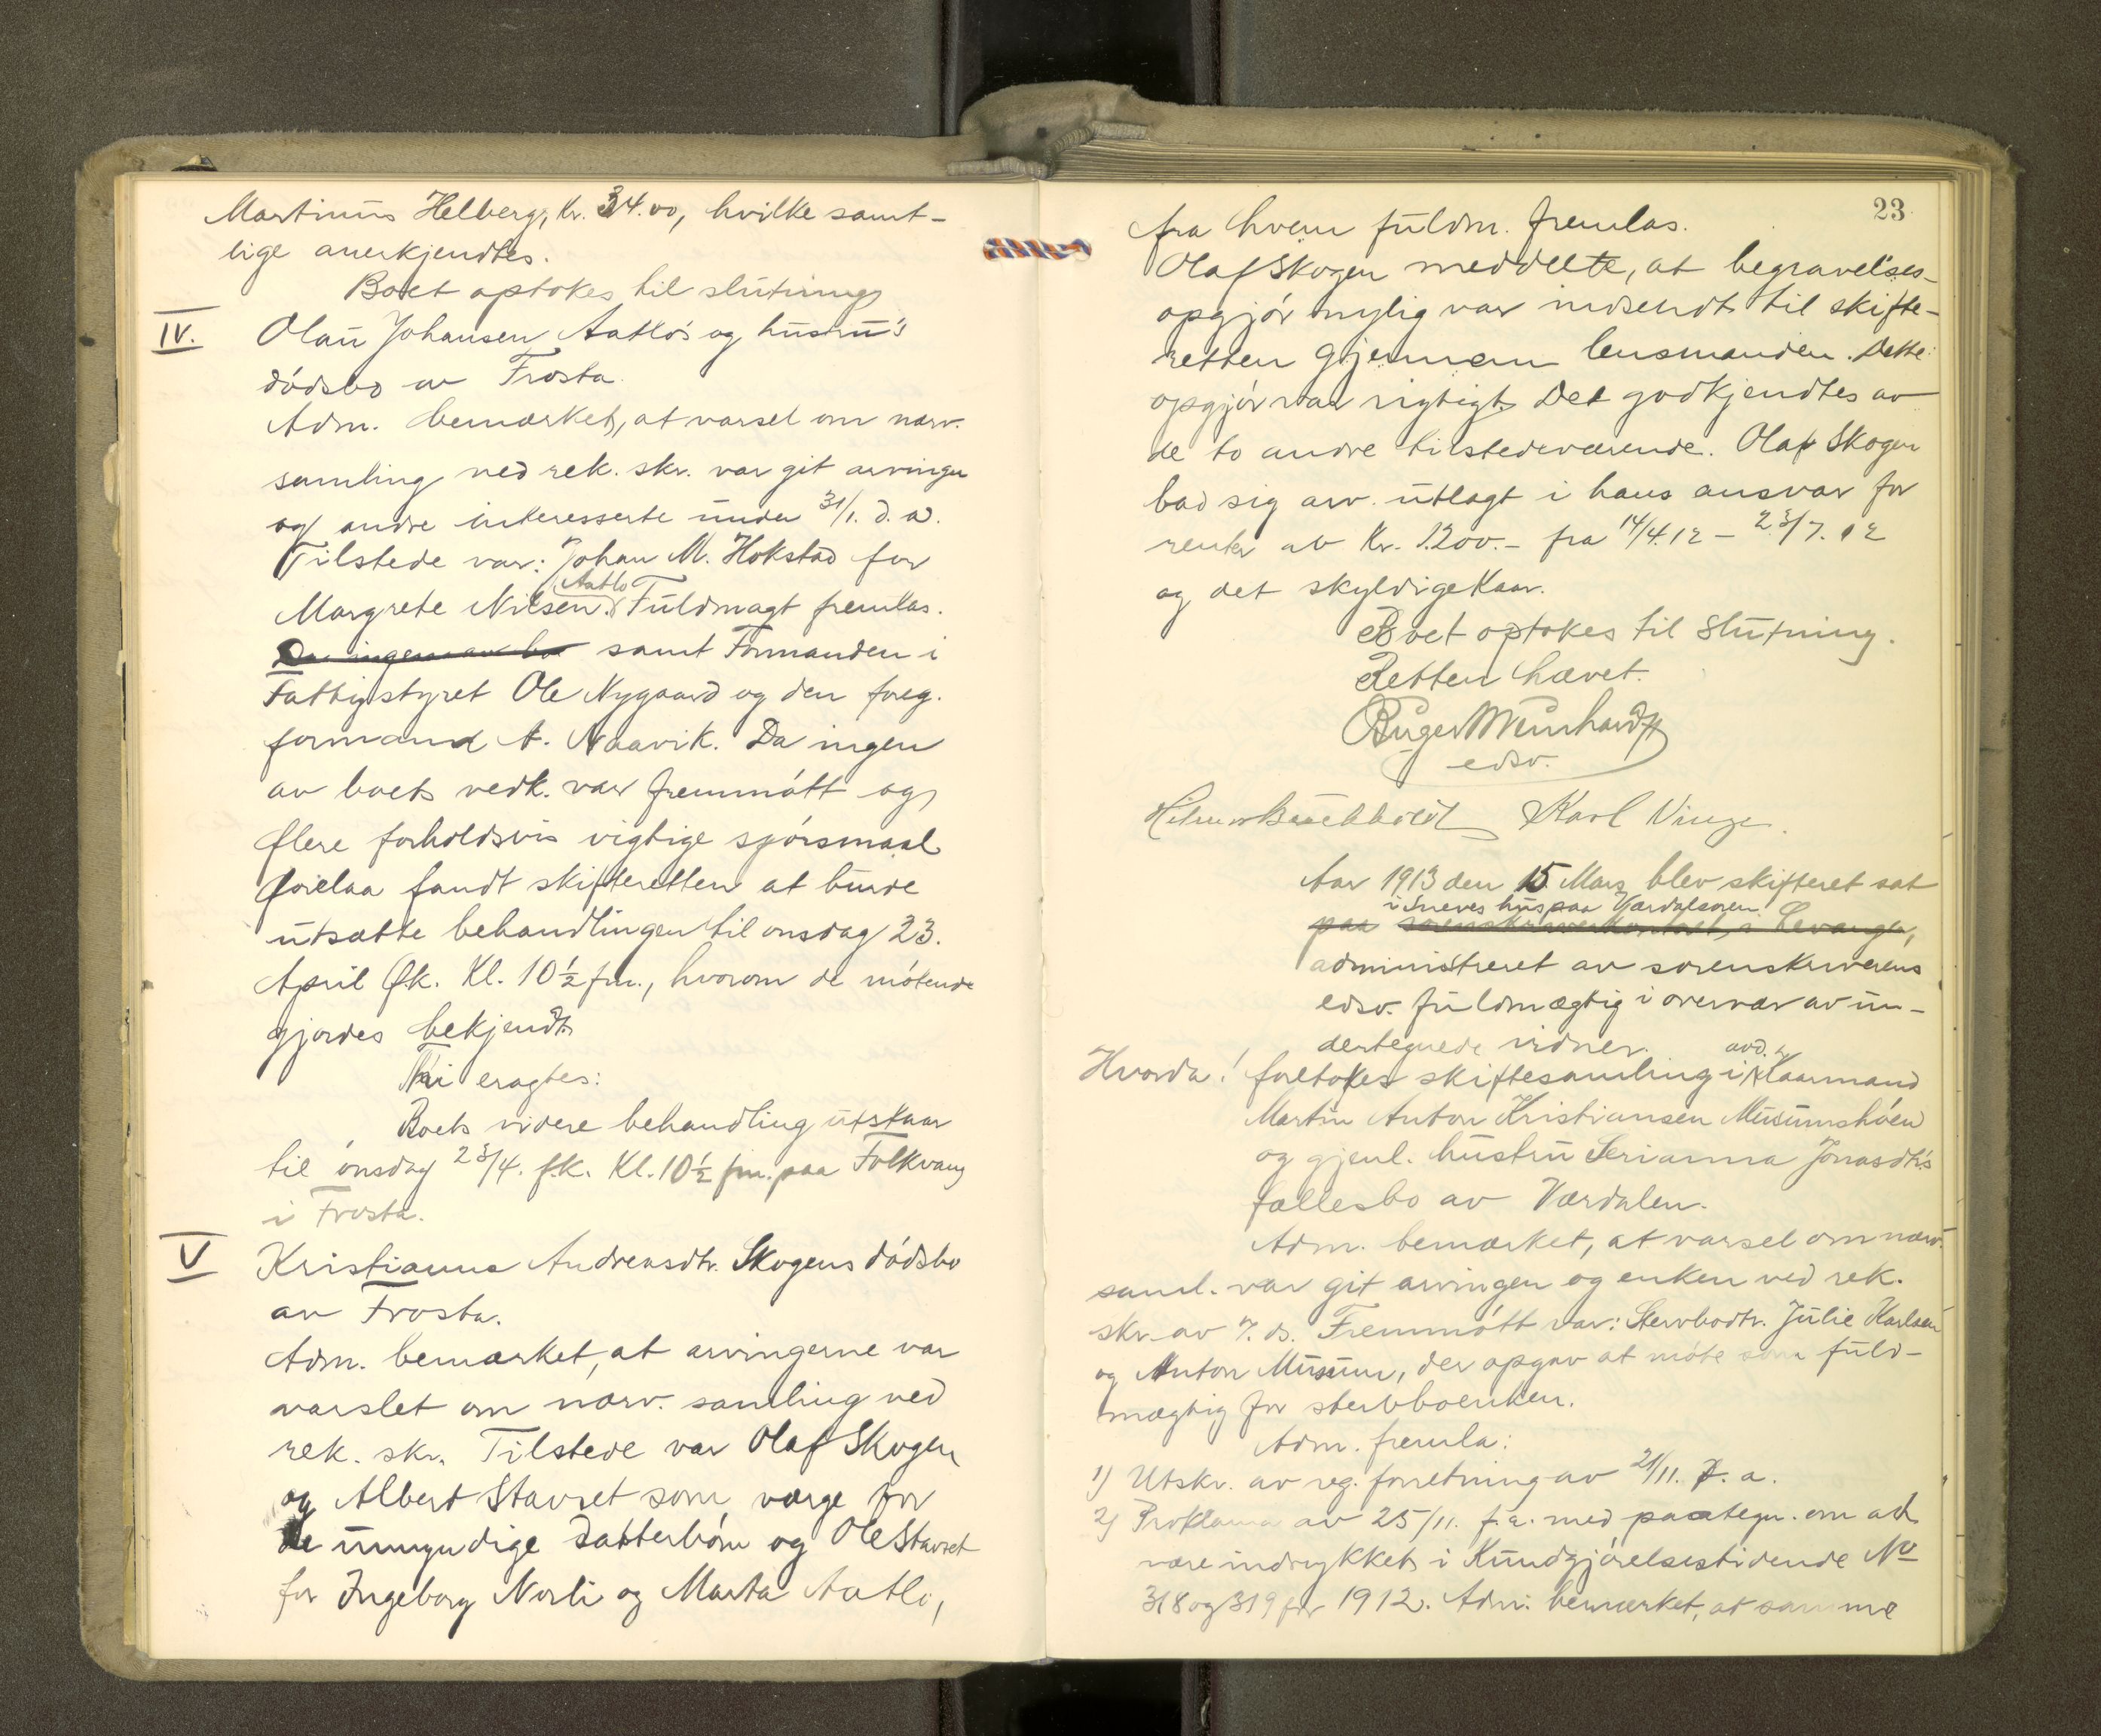 Martinus Helberg, Kr. 34.00, hvilke samt-
lige anerkjendtes.
Boet optokes til slutning
IV. Olau Johansen Aatlo's og hustru's
dødsbo av Frosta.
Adm. bemærket, at varsel om nærv.
samling ved rek. skr. var git arvinger
og andre interesserte under 31/1. d. a.
Tilstede var: Johan M. Hokstad for
Margrete Nilsen Aatlo. Fuldmagt fremlas.
Da ingen av bo samt Formanden i
Fattigstyret Ole Nygaard og den foreg.
formand A. Naavik. Da ingen
av boets vedk. var fremmøtt og
flere forholdsvis vigtige spørsmaal
forelaa fandt skifteretten at burde
utsætte behandlingen til onsdag 23.
April fk. Kl. 10½ fm., hvorom de møtende
gjordes bekjendt.
Thi eragtes:
Boets videre behandling utstaar
til onsdag 23/4. f.k. Kl. 10½ fm. paa Folkvang
i Frosta.
V Kristianna Andreasdtr. Skogens dødsbo
av Frosta.
Adm. bemærket, at arvingerne var
varslet om nærv. samling ved
rek. skr. Tilstede var Olaf Skogen
og Albert Stavset som værge for
de umyndige datterbørn og Ole Stavset
for Ingeborg Norli og Marta Aatlo,
23
fra hvem fuldm. fremlas.
Olaf Skogen meddelte, at begravelses-
opgjør nylig var indsendt til skifte-
retten gjennem lensmanden. Dette
opgjør var rigtigt. Det godkjendtes av
de to andre tilstedeværende. Olaf Skogen
bad sig arv. utlagt i hans ansvar for
renter av Kr. 1200.- fra 14/4.12 - 23/7.12
og det skyldige Kaar.
Boet optokes til slutning.
Retten hævet.
Birger Meinhardt
edsv.
Hilmar Buchholdt Karl Vinge.
Aar 1913 den 15 Mars blev skifteret sat
i Sneves hus paa Værdalsøren
paa sorenskriverkontoret, i Levanger,
administreret av sorenskriverens
edsv. fuldmægtig i overvær av un-
dertegnede vidner.
Hvorda! foretokes skiftesamling i avd. Kaarmand
Martin Anton Kristiansen Musumshøen
og gjenl. hustru Serianna Jonasdtr's
fællesbo av Værdalen.
Adm. bemærket, at varsel om nærv.
saml. var git arvingen og enken ved rek.
skr. av 7. ds. Fremmøtt var: Stervbodtr. Julie Karlsen
og Anton Musum, der opgav at møte som fuld-
mægtig for stervboenken.
Adm. fremla:
1) Utskr. av reg. forretning av 21/11. f. a.
2) Proklama av 25/11. f. a. med paategn. om at
være indrykket i Kundgjørelsestidende No
318 og 319 for 1912. Adm. bemærket, at samme